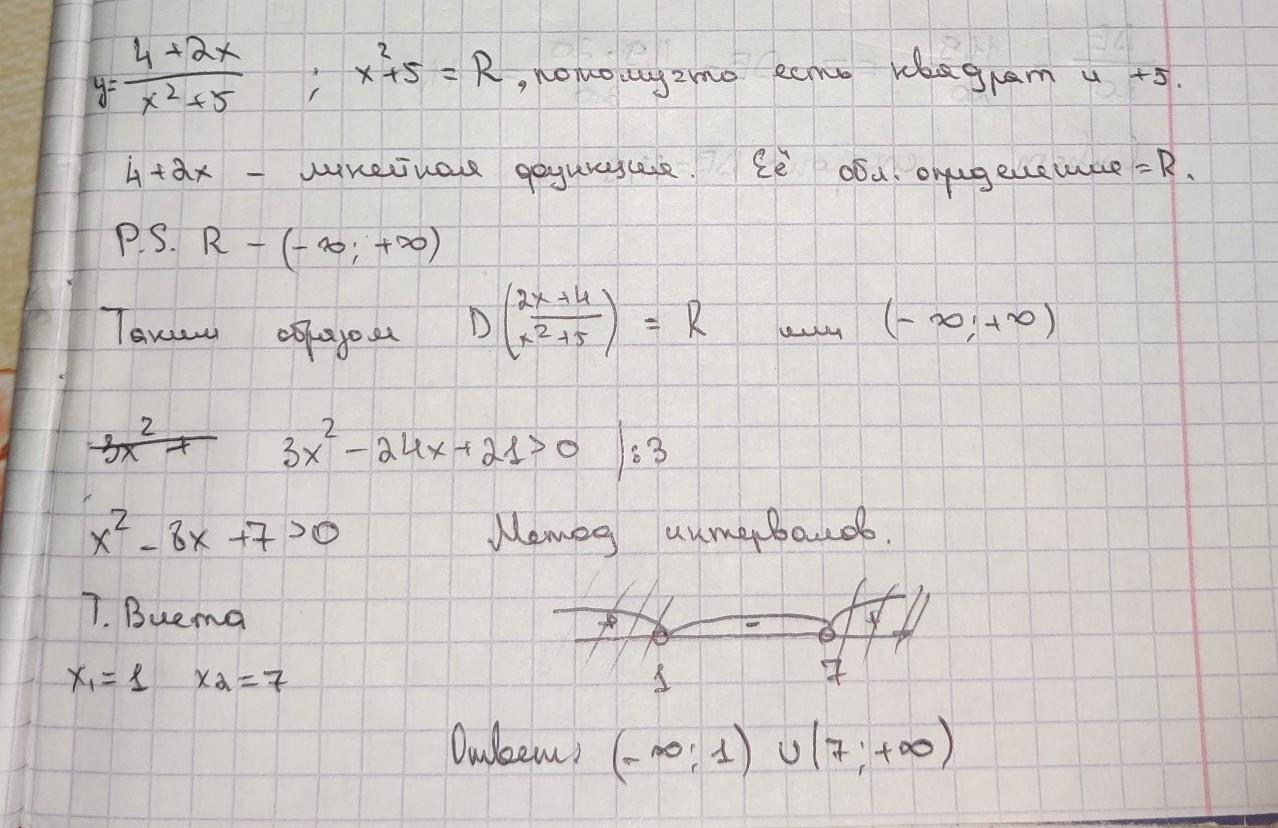 y= 4+2x / x²+5 ; x²+5 = R, потому что есть квадрат и +5.
4+2x – линейная функция. Её обл. определение = R.
P.S. R – (-∞; +∞)
Таким образом D(2x+4 / x²+5) = R или (-∞; +∞)
3x² + 3x² - 24x + 21 > 0 |:3
x² - 8x + 7 > 0 Метод интервалов.
Т. Виета
+ - +
x₁ = 1 x2 = 7 1 7
Ответ: (-∞; 1) ∪ (7; +∞)